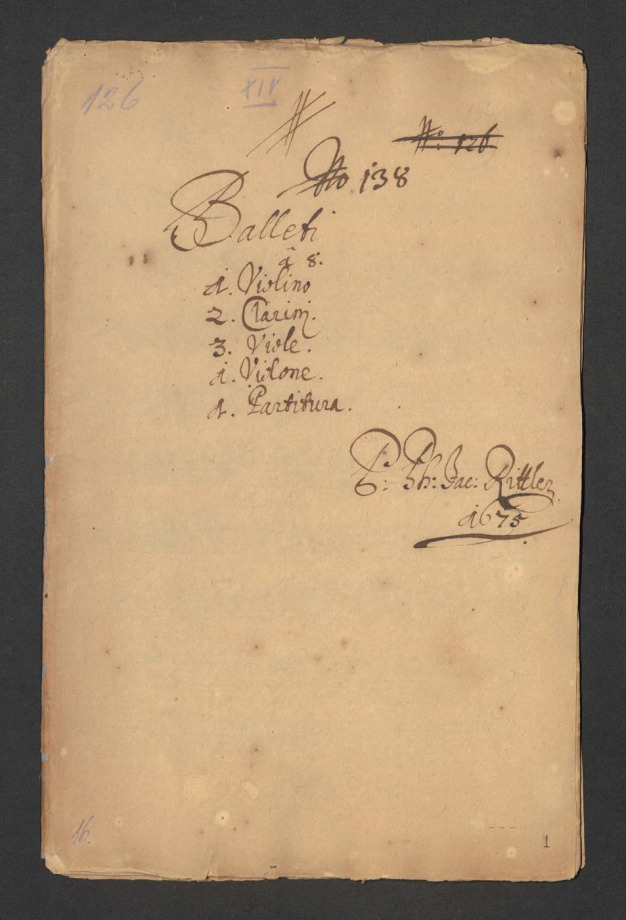 126
XIV
No: 126
No 138
Balleti
à 8.
1. Violino
2. Clarini.
3. Viole.
1. Violone.
1. Partitura.
Ph: Jac: Rittler
1675.
16.
1